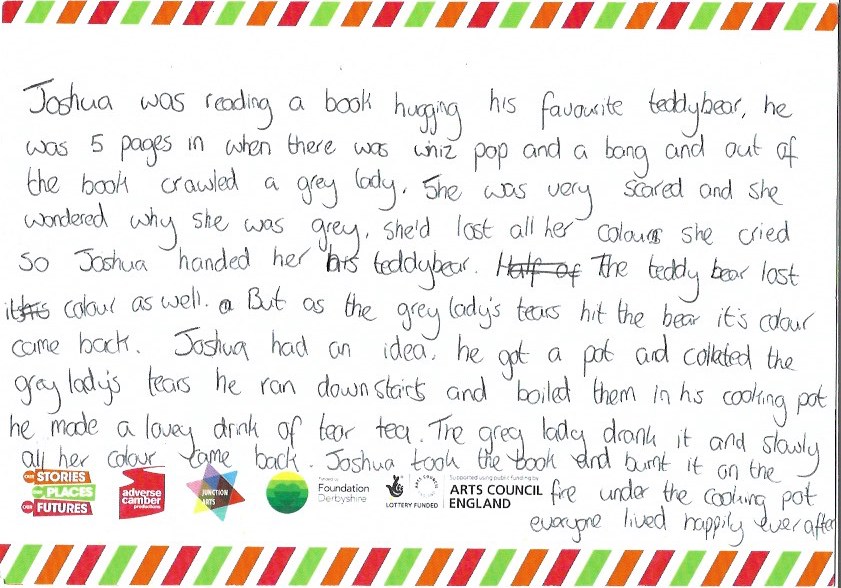 Joshua was reading a book hugging his favourite teddybear, he
was 5 pages in when there was whiz pop and a bang and out of
the book crawled a grey lady. She was very scared and she
wondered why she was grey, she'd lost all her colours she cried
so Joshua handed her his teddybear. Half of The teddy bear lost
its colour as well. a But as the grey lady's tears hit the bear it's colour
came back. Joshua had an idea, he got a pot and collated the
grey lady's tears he ran downstairs and boiled them in hs cooking pot
he made a lovey drink of tear tea. The grey lady drank it and slowly
all her colour came back. Joshua took the book and burnt it on the
fire under the cooking pot
everyone lived happily ever after
OUR STORIES
OUR PLACES
OUR FUTURES
adverse
camber
productions
JUNCTION
ARTS
Foundation
Derbyshire
ARTS COUNCIL
LOTTERY FUNDED
Supported using public funding by
ARTS COUNCIL
ENGLAND